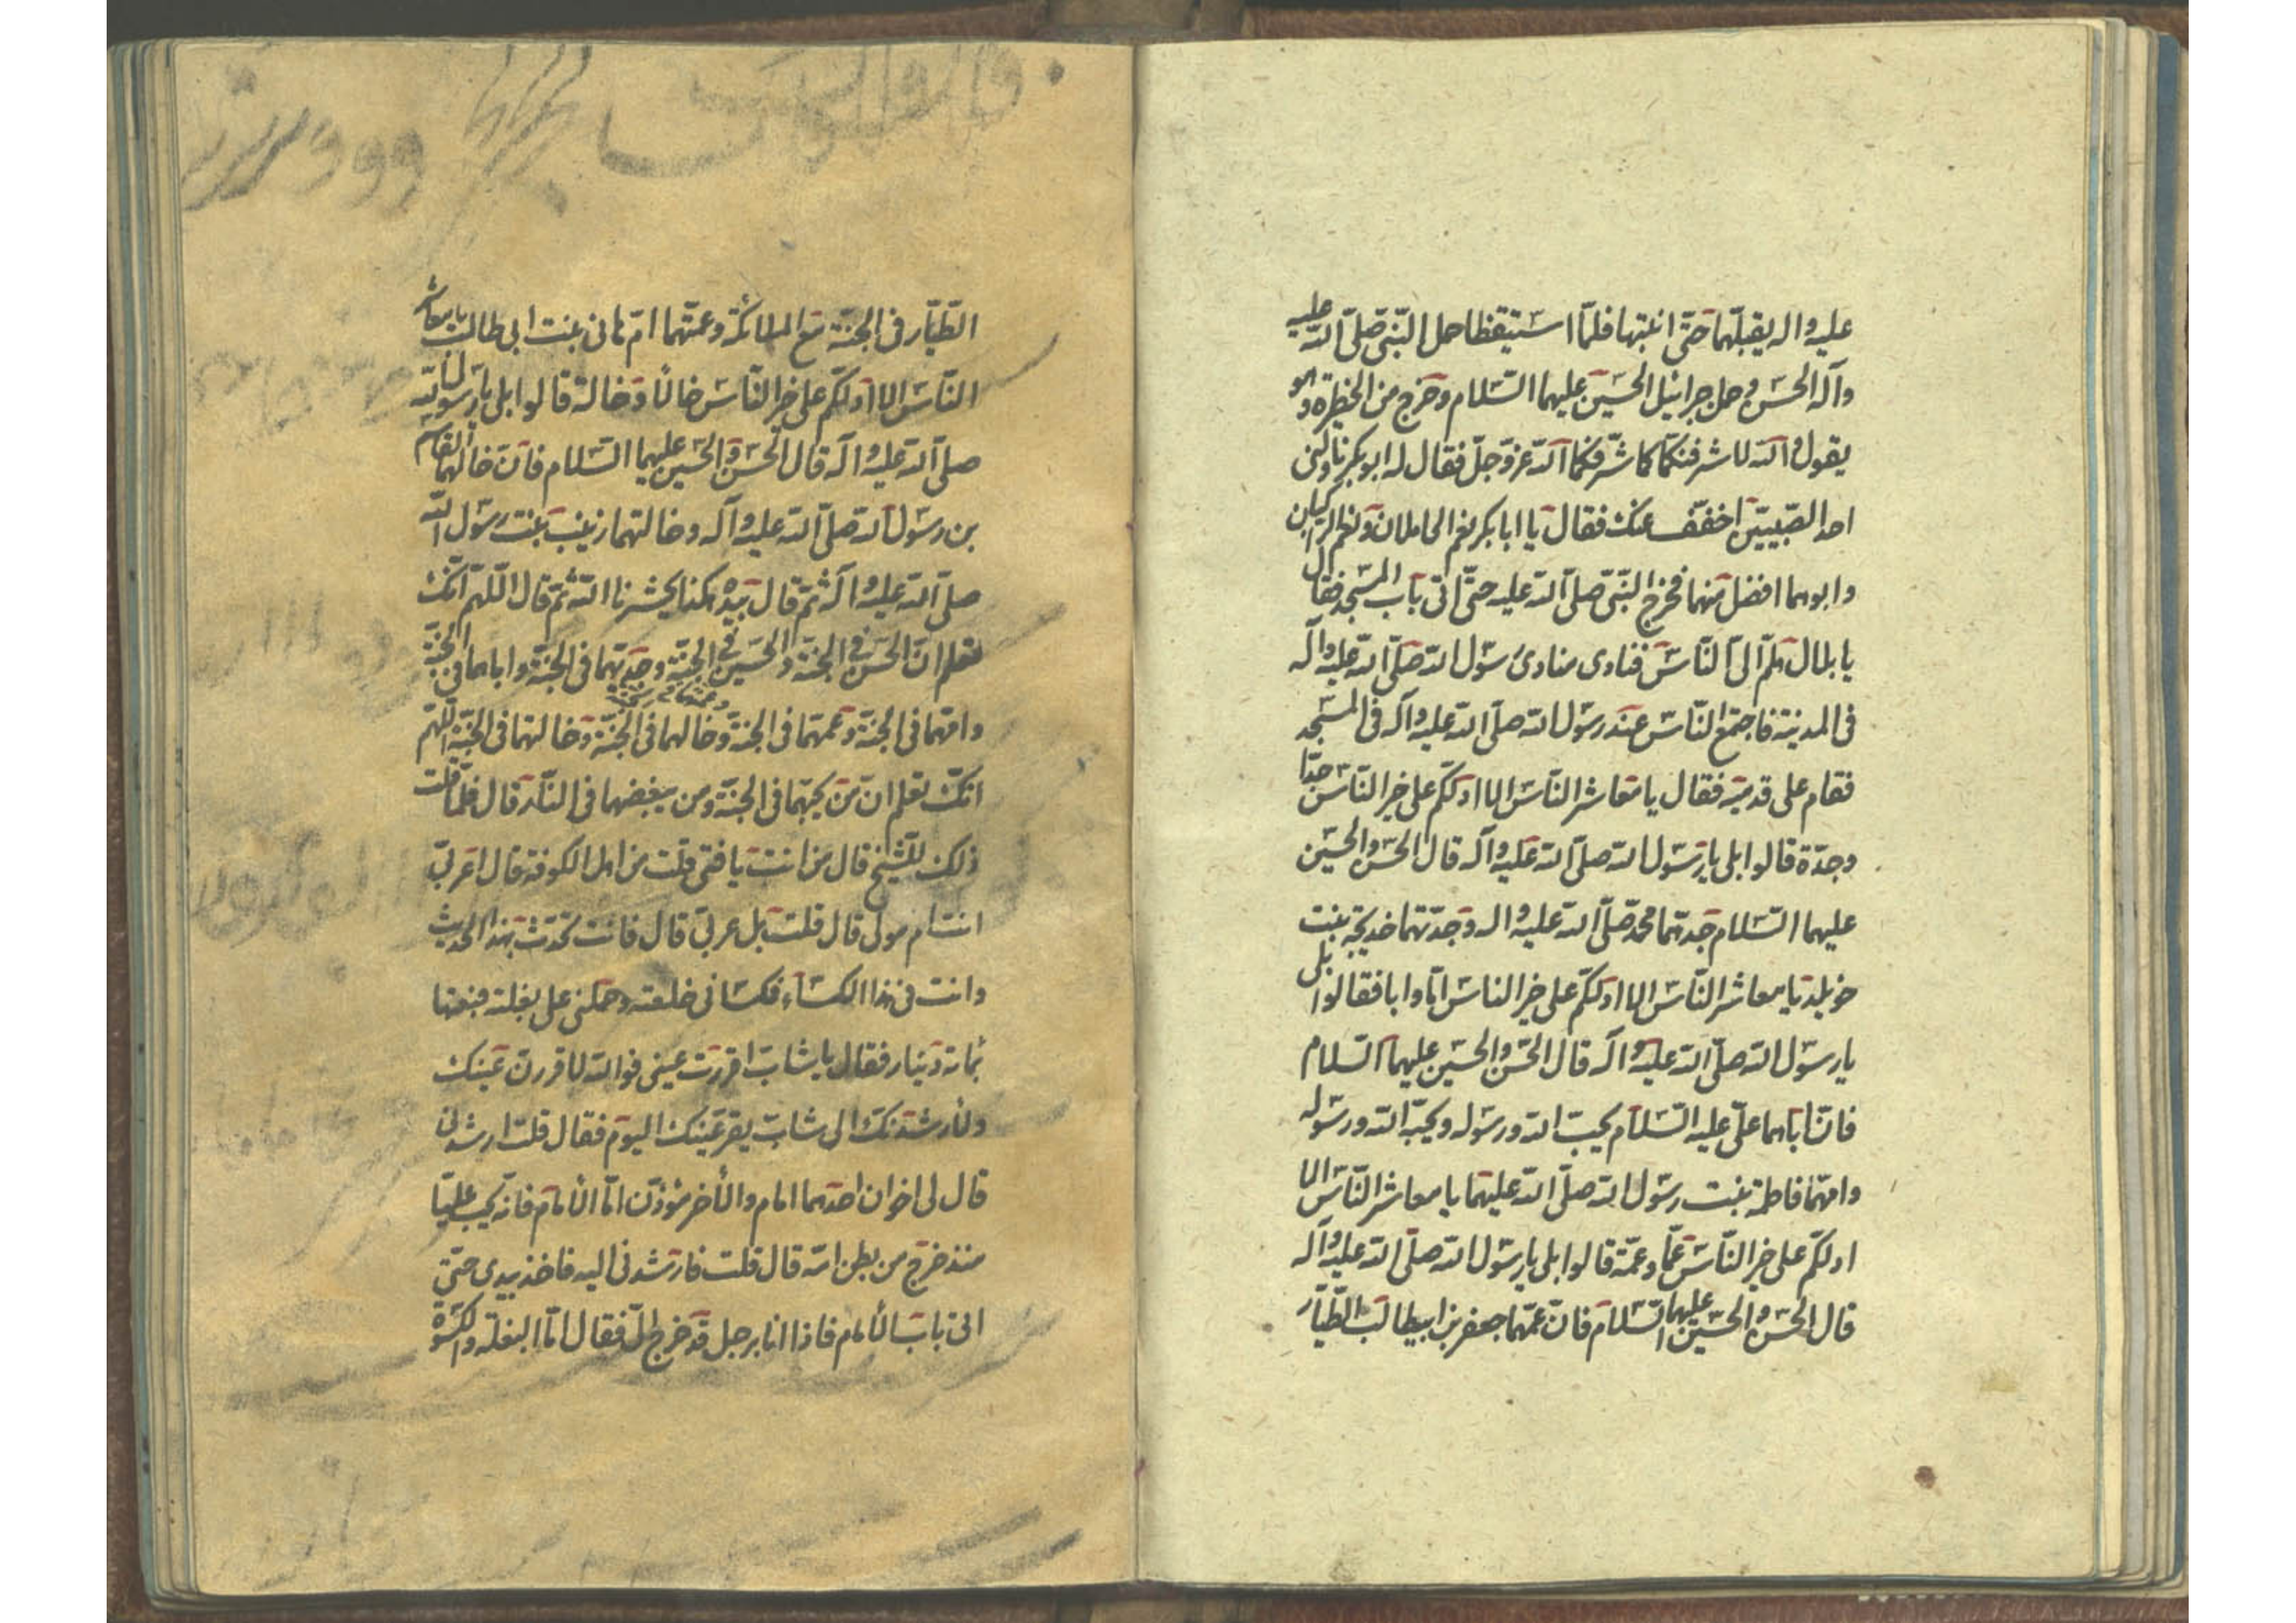 عليه واله يقبلهما حتى انتبها فلما استيقظا حمل النبى صلى الله عليه
وآله الحسن وحمل جبرائيل الحسين عليهما السلام وخرج من الحظيرة وهو
يقول والله لاشرفنكما كما شرفكما الله عز وجل فقال له ابو بكر ناولنى
احد الصبيين اخفف عنك فقال يا ابا بكر نعم الحاملان ونعم الراكبان
وابوهما افضل منهما فخرج النبى صلى الله عليه حتى اتى باب المسجد فقال
يا بلال هلم الى الناس فنادى منادى رسول الله صلى الله عليه وآله
فى المدينة فاجتمع الناس عند رسول الله صلى الله عليه وآله فى المسجد
فقام على قدميه فقال يا معاشر الناس الا ادلكم على خير الناس جدا
وجدة قالوا بلى يا رسول الله صلى الله عليه وآله قال الحسن والحسين
عليهما السلام جدهما محمد صلى الله عليه واله وجدتهما خديجة بنت
خويلد يا معاشر الناس الا ادلكم على خير الناس ابا واما فقالوا بلى
يا رسول الله صلى الله عليه وآله قال الحسن والحسين عليهما السلام
فان اباهما على عليه السلام يحب الله ورسوله ويحبه الله ورسوله
وامهما فاطمة بنت رسول الله صلى الله عليهما يا معاشر الناس الا
ادلكم على خير الناس عما وعمة قالوا بلى يا رسول الله صلى الله عليه وآله
قال الحسن والحسين عليهما السلام فان عمهما جعفر بن ابيطالب الطيار
الطيار فى الجنة مع الملائكة وعمتهما ام هانى بنت ابى طالب يا معاشر
الناس الا ادلكم على خير الناس خالا وخالة قالوا بلى يا رسول الله
صلى الله عليه وآله قال الحسن والحسين عليهما السلام فان خالهما القاسم
بن رسول الله صلى الله عليه وآله وخالتهما زينب بنت رسول الله
صلى الله عليه وآله ثم قال بيده هكذا يحشرنا الله ثم قال اللهم انك
لتعلم ان الحسن فى الجنة والحسين فى الجنة وجديهما فى الجنة واباهما فى الجنة
وامهما فى الجنة وعمهما فى الجنة وعمتهما فى الجنة وخالهما فى الجنة وخالتهما فى الجنة اللهم
انك تعلم ان من يحبهما فى الجنة ومن يبغضهما فى النار قال فلما قلت
ذلك للشيخ قال من انت يا فتى قلت من اهل الكوفة قال اعربى
انت ام مولى قال قلت بل عربى قال فانت تحدث بهذا الحديث
وانت فى هذا الكساء فكسانى خلعته وحملنى على بغلته فبعتها
بمائة دينار فقال يا شاب اقررت عينى فوالله لاقررن عينك
ولأرشدنك الى شاب يقر عينك اليوم فقال قلت ارشدنى
قال لى اخوان احدهما امام والأخر مؤذن اما الأمام فانه يحب عليا
منذ خرج من بطن امه قال قلت فارشدنى اليه فاخذ بيدى حتى
اتى باب الأمام فاذا انا برجل قد خرج الى فقال اما البغلة والكسوة